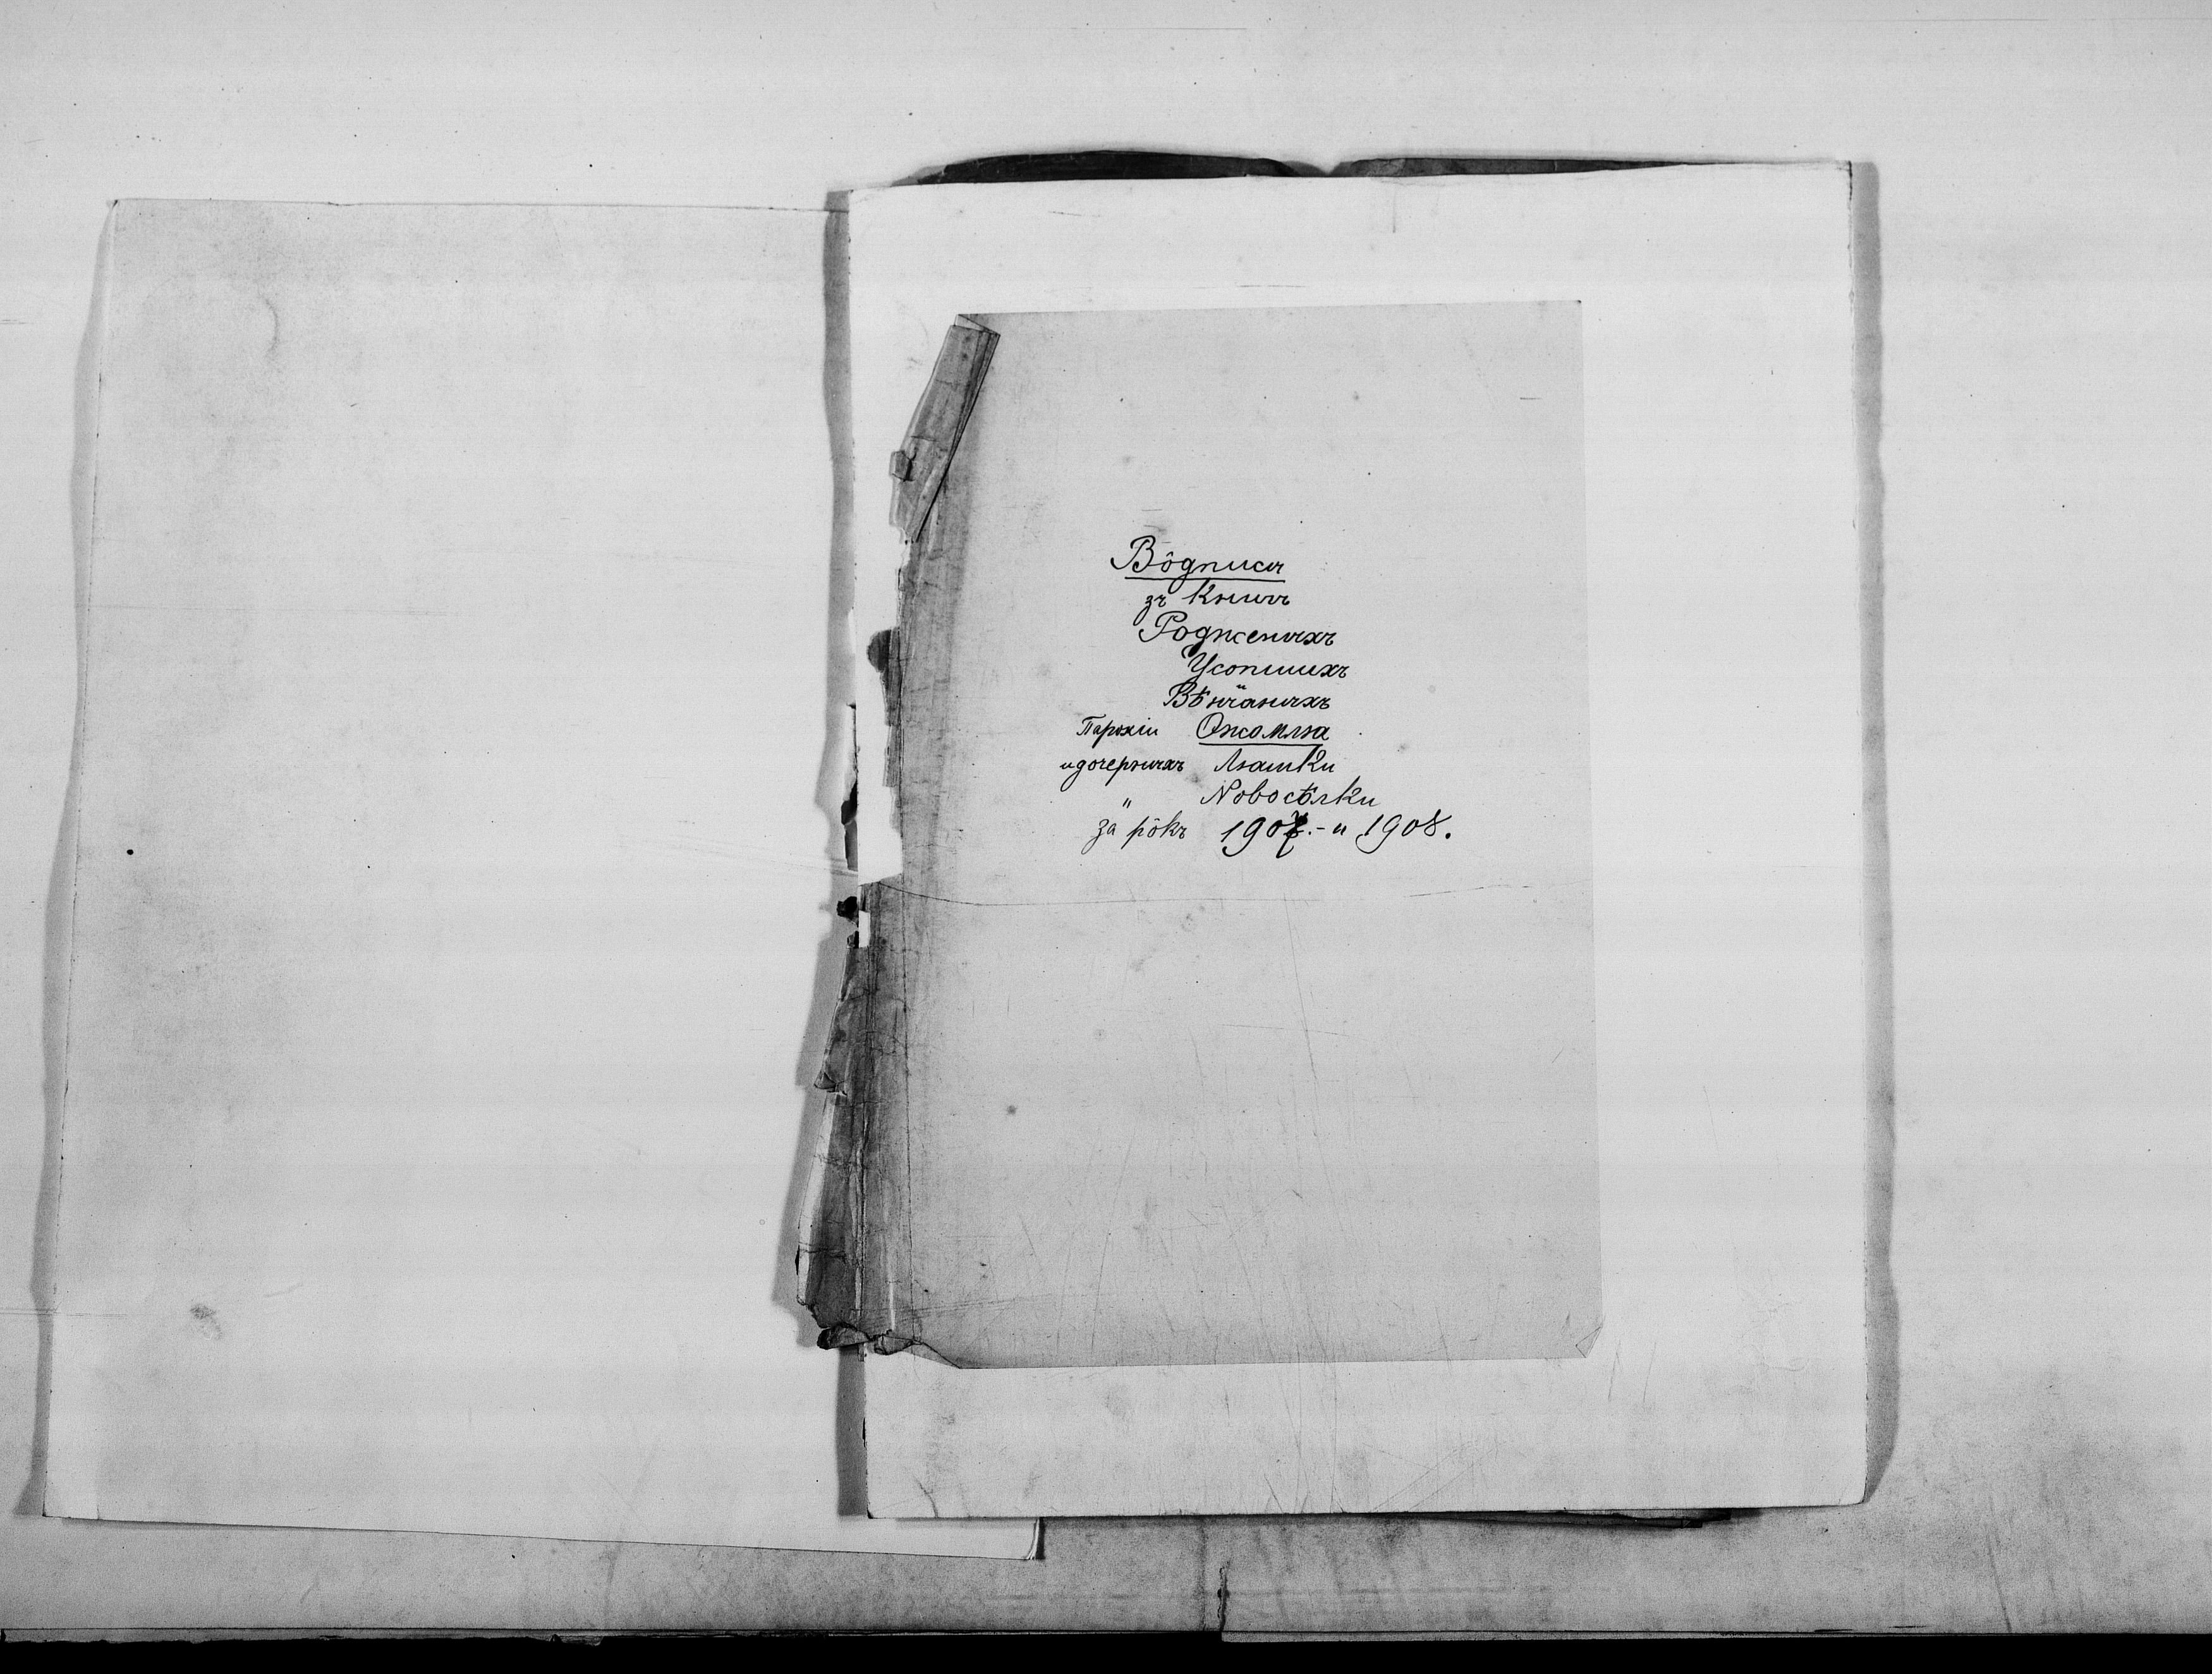 Вôдписи
зъ Книгъ
Родженыхъ
Усопшихъ
Вѣнчаныхъ
Парохіи Ожомля
и дочерныхъ Ляшки
" Новосѣлки
за рôкъ 1907.- и 1908.